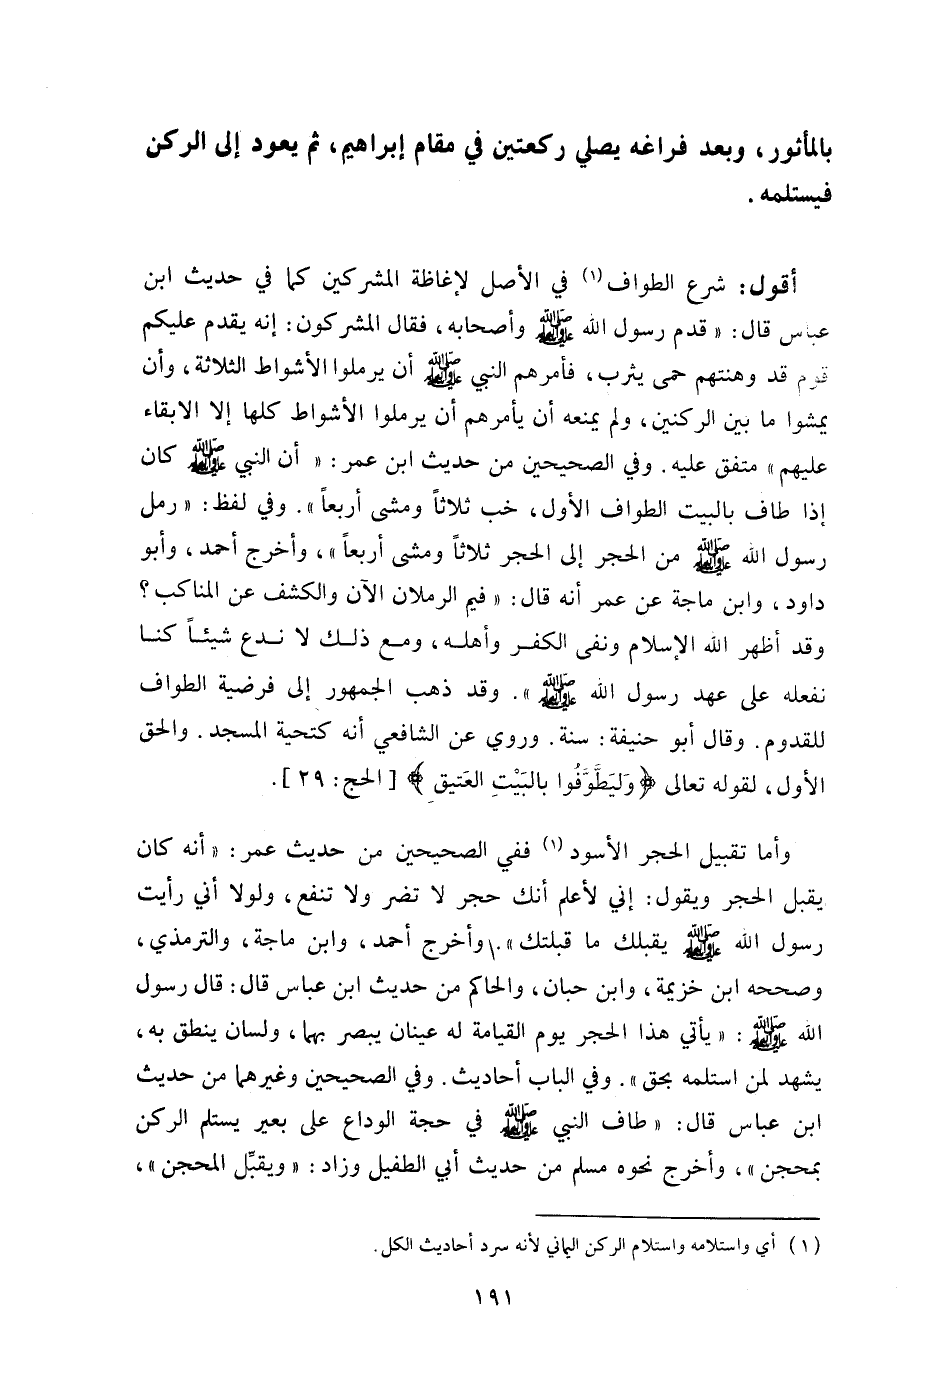 بالمأثور، وبعد فراغه يصلي ركعتين في مقام إبراهيم، ثم يعود إلى الركن
فيستلمه .
أقول: شرع الطواف (١) في الأصل لإغاظة المشركين كما في حديث ابن
عباس قال: « قدم رسول الله ﷺ وأصحابه، فقال المشركون: إنه يقدم عليكم
قوم قد وهنتهم حمى يثرب، فأمرهم النبي ﷺ أن يرملوا الأشواط الثلاثة، وأن
يمشوا ما بين الركنين، ولم يمنعه أن يأمرهم أن يرملوا الأشواط كلها إلا الابقاء
عليهم » متفق عليه. وفي الصحيحين من حديث ابن عمر: « أن النبي ﷺ كان
إذا طاف بالبيت الطواف الأول، خب ثلاثاً ومشى أربعاً ». وفي لفظ: « رمل
رسول الله ﷺ من الحجر إلى الحجر ثلاثاً ومشى أربعاً »، وأخرج أحمد، وأبو
داود، وابن ماجة عن عمر أنه قال: « فيم الرملان الآن والكشف عن المناكب؟
وقد أظهر الله الإسلام ونفى الكفر وأهله، ومع ذلك لا ندع شيئاً كنا
نفعله على عهد رسول الله ﷺ ». وقد ذهب الجمهور إلى فرضية الطواف
للقدوم. وقال أبو حنيفة: سنة. وروي عن الشافعي أنه كتحية المسجد. والحق
الأول، لقوله تعالى ﴿وَليَطَّوَّفُوا بالبَيْتِ العَتيق﴾ [ الحج: ٢٩ ].
وأما تقبيل الحجر الأسود (١) ففي الصحيحين من حديث عمر: « أنه كان
يقبل الحجر ويقول: إني لأعلم أنك حجر لا تضر ولا تنفع، ولولا أني رأيت
رسول الله ﷺ يقبلك ما قبلتك ». وأخرج أحمد، وابن ماجة، والترمذي،
وصححه ابن خزيمة، وابن حبان، والحاكم من حديث ابن عباس قال: قال رسول
الله ﷺ : « يأتي هذا الحجر يوم القيامة له عينان يبصر بهما، ولسان ينطق به،
يشهد لمن استلمه بحق ». وفي الباب أحاديث. وفي الصحيحين وغيرهما من حديث
ابن عباس قال: « طاف النبي ﷺ في حجة الوداع على بعير يستلم الركن
بمحجن »، وأخرج نحوه مسلم من حديث أبي الطفيل وزاد: « ويقبِّل المحجن »،
(١) أي واستلامه واستلام الركن اليماني لأنه سرد أحاديث الكل.
١٩١